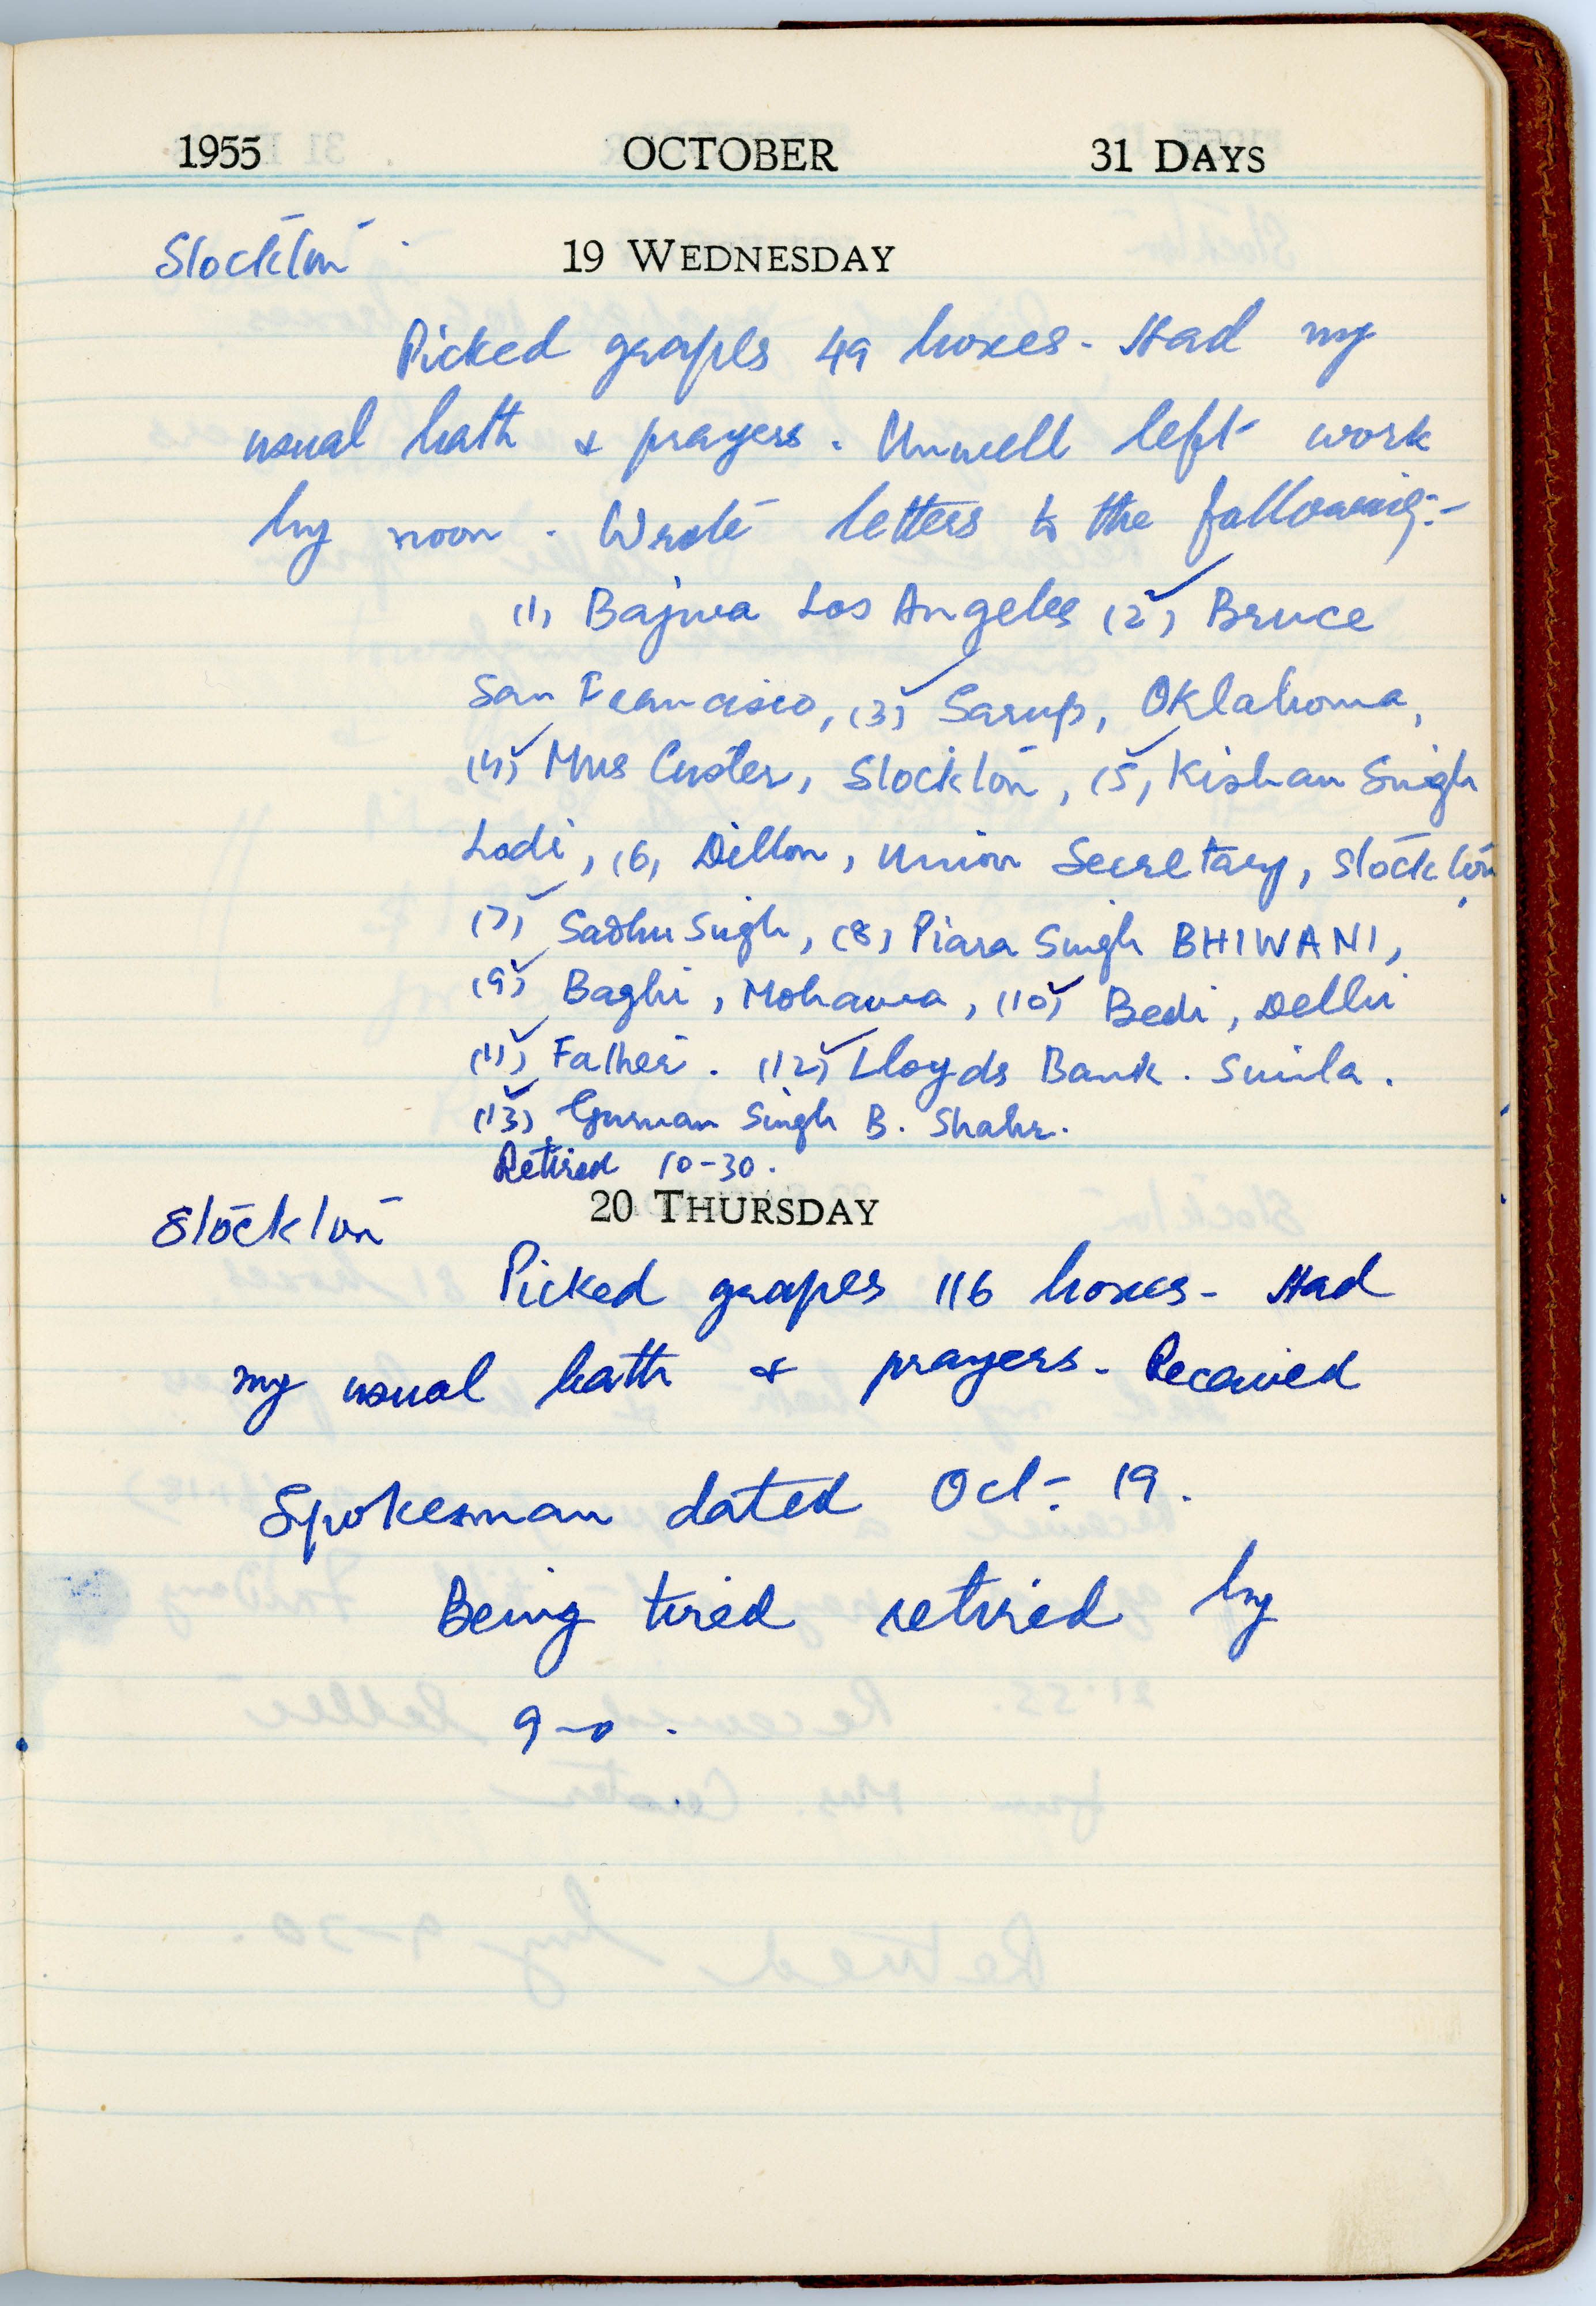 1955 OCTOBER 31 DAYS
Stockton 19 WEDNESDAY
Picked grapes 49 boxes - Had my
usual bath & prayers. Unwell left work
by noon. Wrote letters to the following:-
(1) Bajwa Los Angeles (2) Bruce
San Francisco, (3) Sarup, Oklahoma,
(4) Mrs Custer, Stockton, (5) Kishan Singh
Lodi, (6) Dillon, Union Secretary, Stockton
(7) Sadhu Singh, (8) Piara Singh BHIWANI,
(9) Baghi, Mohawa, (10) Bedi, Delhi
(11) Father. (12) Lloyds Bank. Simla.
(13) Gurman Singh B. Shahr.
Retired 10-30.
Stockton 20 THURSDAY
Picked grapes 116 boxes - Had
my usual bath & prayers - Received
Spokesman dated Oct. 19.
Being tired retired by
9-0.